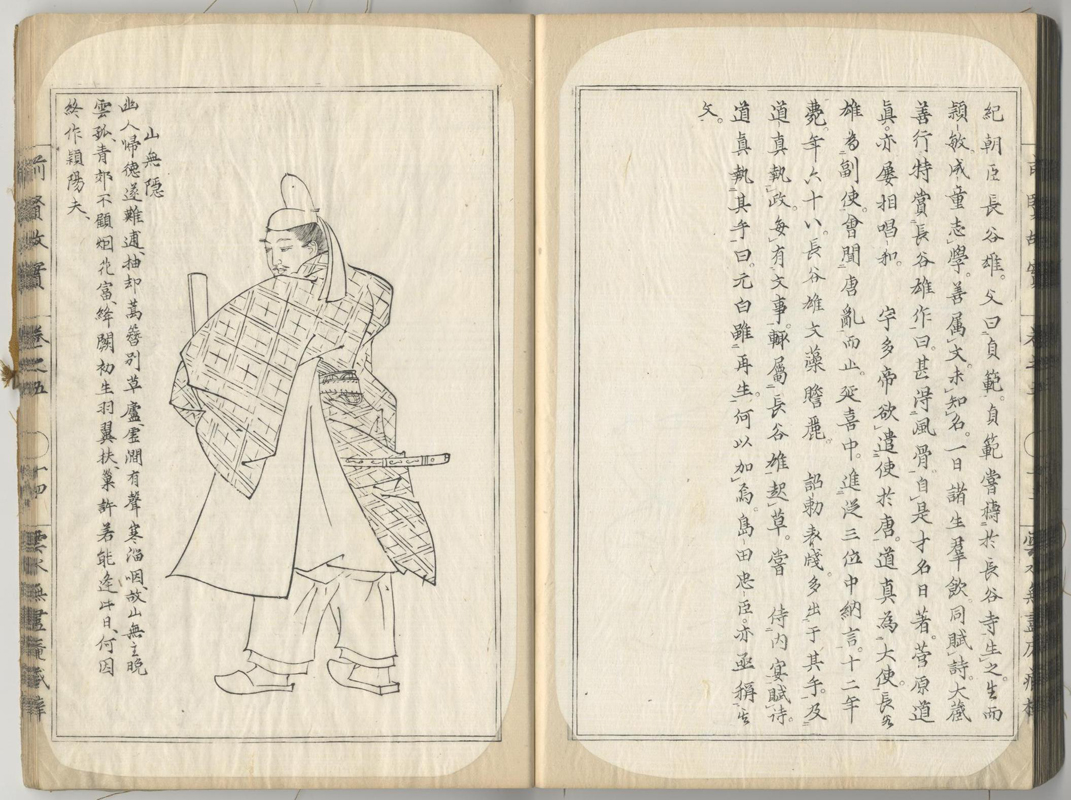 紀朝臣長谷雄。父曰貞範。貞範嘗禱於長谷寺生之。生而
穎敏成童志學。善属文。未知名。一日諸生羣飲同賦詩。大蔵
善行特賞長谷雄作曰。甚得風骨。自是才名日著。菅原道
眞。亦屡相唱和。　宇多帝欲遣使於唐。道真為大使。長谷
雄為副使。會聞唐亂而止。延喜中。進従三位中納言。十二年
薨。年六十八。長谷雄文藻贍麗。　詔勅表牋。多出于其手。及
道真執政。毎有文事。輙属長谷雄起草。嘗　侍内宴賦诗。
道眞執其手曰。元白雖再生。何以加焉。島田忠臣。亦亟稱
文。
山無隠
幽人帰徳遂難逋、抽却萬簪别草廬、虚澗有聲寒溜咽、故山無主晩
雲孤、青郊不顧烟花富、絳闕初生羽翼扶、巣許若能逢此日、何因
終作穎陽夫、
前賢故實　巻之五　〇十四　雲水無盡庵蔵梓